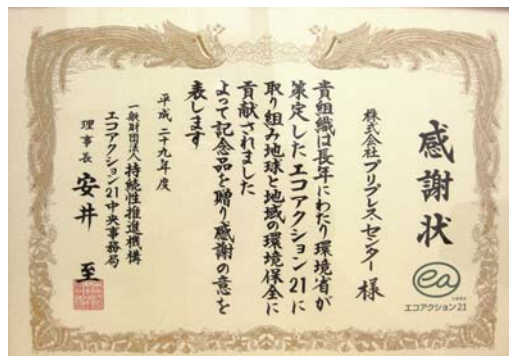 感謝状
株式会社プリプレス・センター 様
貴組織は長年にわたり環境省が
策定したエコアクション21に
取り組み地球と地域の環境保全に
貢献されました
よって記念品を贈り感謝の意を
表します
平成二十九年度
一般財団法人持続性推進機構
エコアクション21中央事務局
理事長 安井 至
ea
エコアクション21